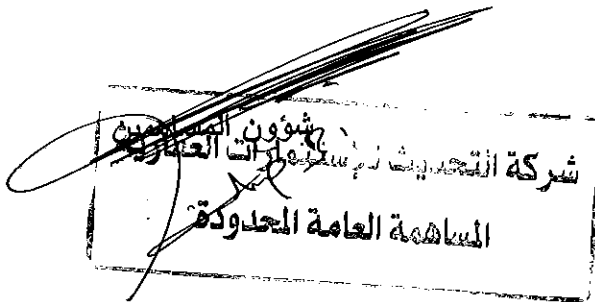 شؤون المساهمين
شركة التحديث للإستثمارات العقارية
المساهمة العامة المحدودة